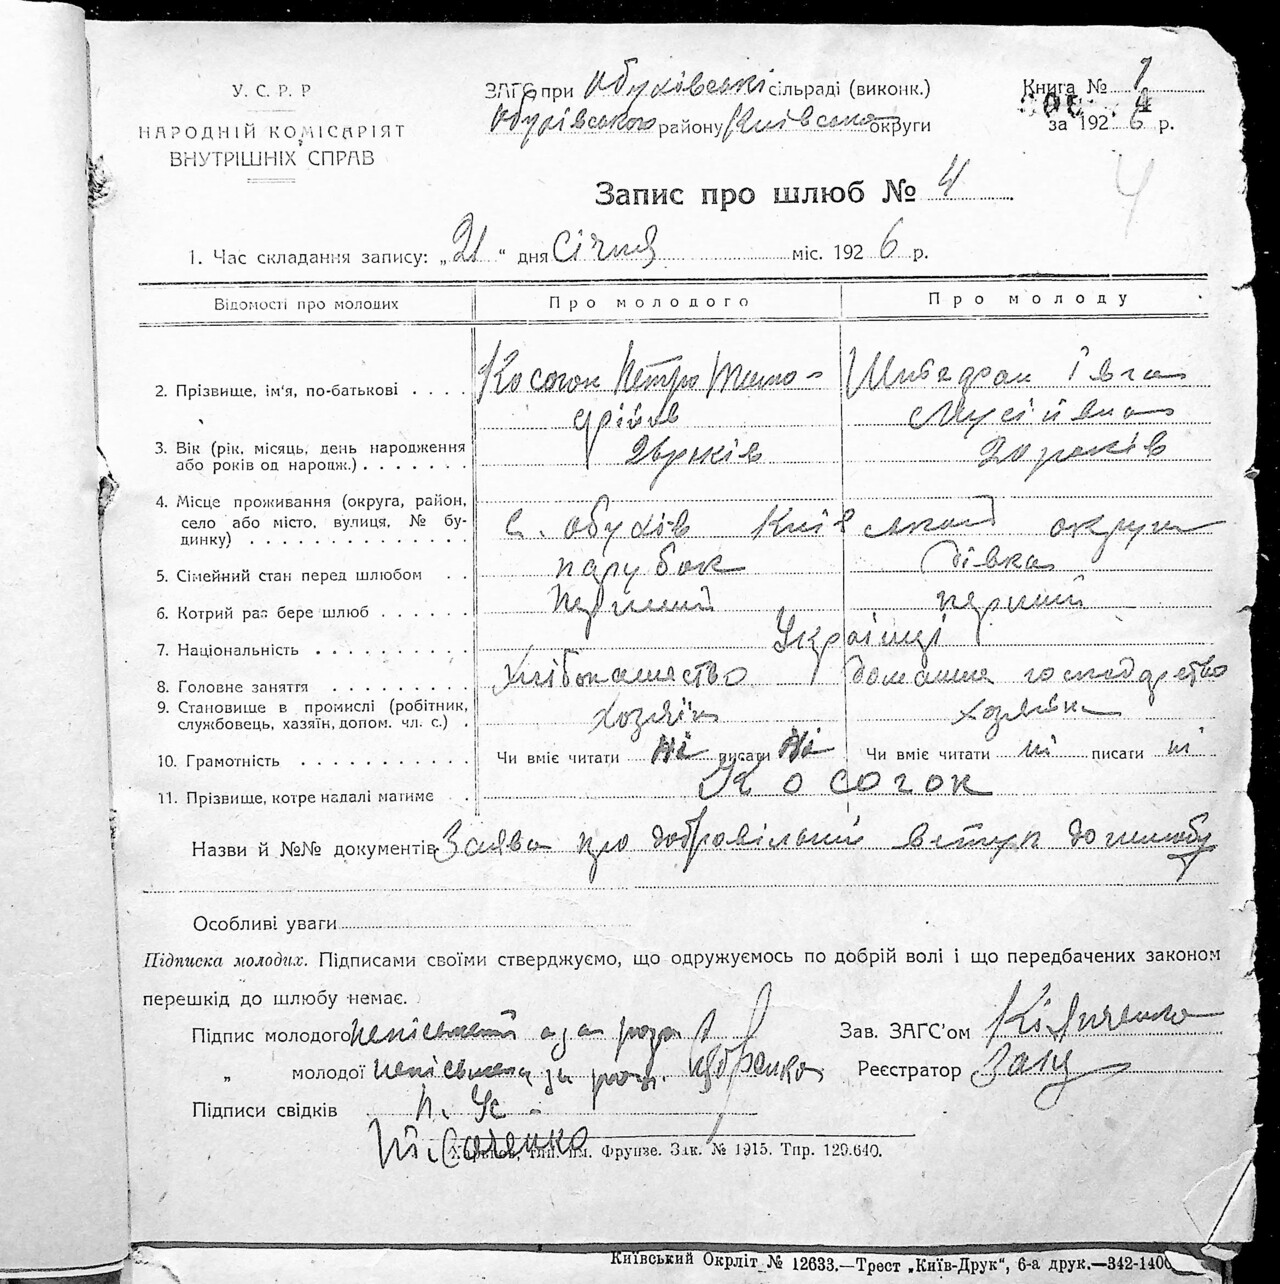 У. С. Р. Р
НАРОДНІЙ КОМІСАРІЯТ
ВНУТРІШНІХ СПРАВ
ЗАГС при Обухівські сільраді (виконк.)
Обухівського району Київсько округи
Книга № 1
за 1926 р.
Запис про шлюб № 4
4
1. Час складання запису: „21“ дня Січня міс. 1926 р.
Відомості про молодих Про молодого Про молоду
2. Прізвище, ім'я, по-батькові Косогон Петро Тимо- Ївга
фійов Мусіївна
3. Вік (рік, місяць, день народження
або років од народж.) 26 років 20 років
4. Місце проживання (округа, район,
село або місто, вулиця, № бу-
динку) с. Обухів Київської округи
5. Сімейний стан перед шлюбом парубок дівка
6. Котрий раз бере шлюб перший перший
7. Національність Українці
8. Головне заняття Хлібопашество домашнє господарство
9. Становище в промислі (робітник,
службовець, хазяїн, допом. чл. с.) хозяїн хозяйка
10. Грамотність Чи вміє читати ні писати ні Чи вміє читати ні писати ні
11. Прізвище, котре надалі матиме Косогон
Назви й №№ документів Заява про добровільний вступ до шлюбу
Особливі уваги
Підписка молодих. Підписами своїми стверджуємо, що одружуємось по добрій волі і що передбачених законом
перешкід до шлюбу немає.
Підпис молодого неписьмений а за Зав. ЗАГС'ом
„ молодої неписьмена за Реєстратор
Підписи свідків
Харьків, тип. ім. Фрунзе. Зак. № 1915. Тпр. 129.640.
Київський Окрліт № 12633.—Трест „Київ-Друк“, 6-а друк.—342-1400